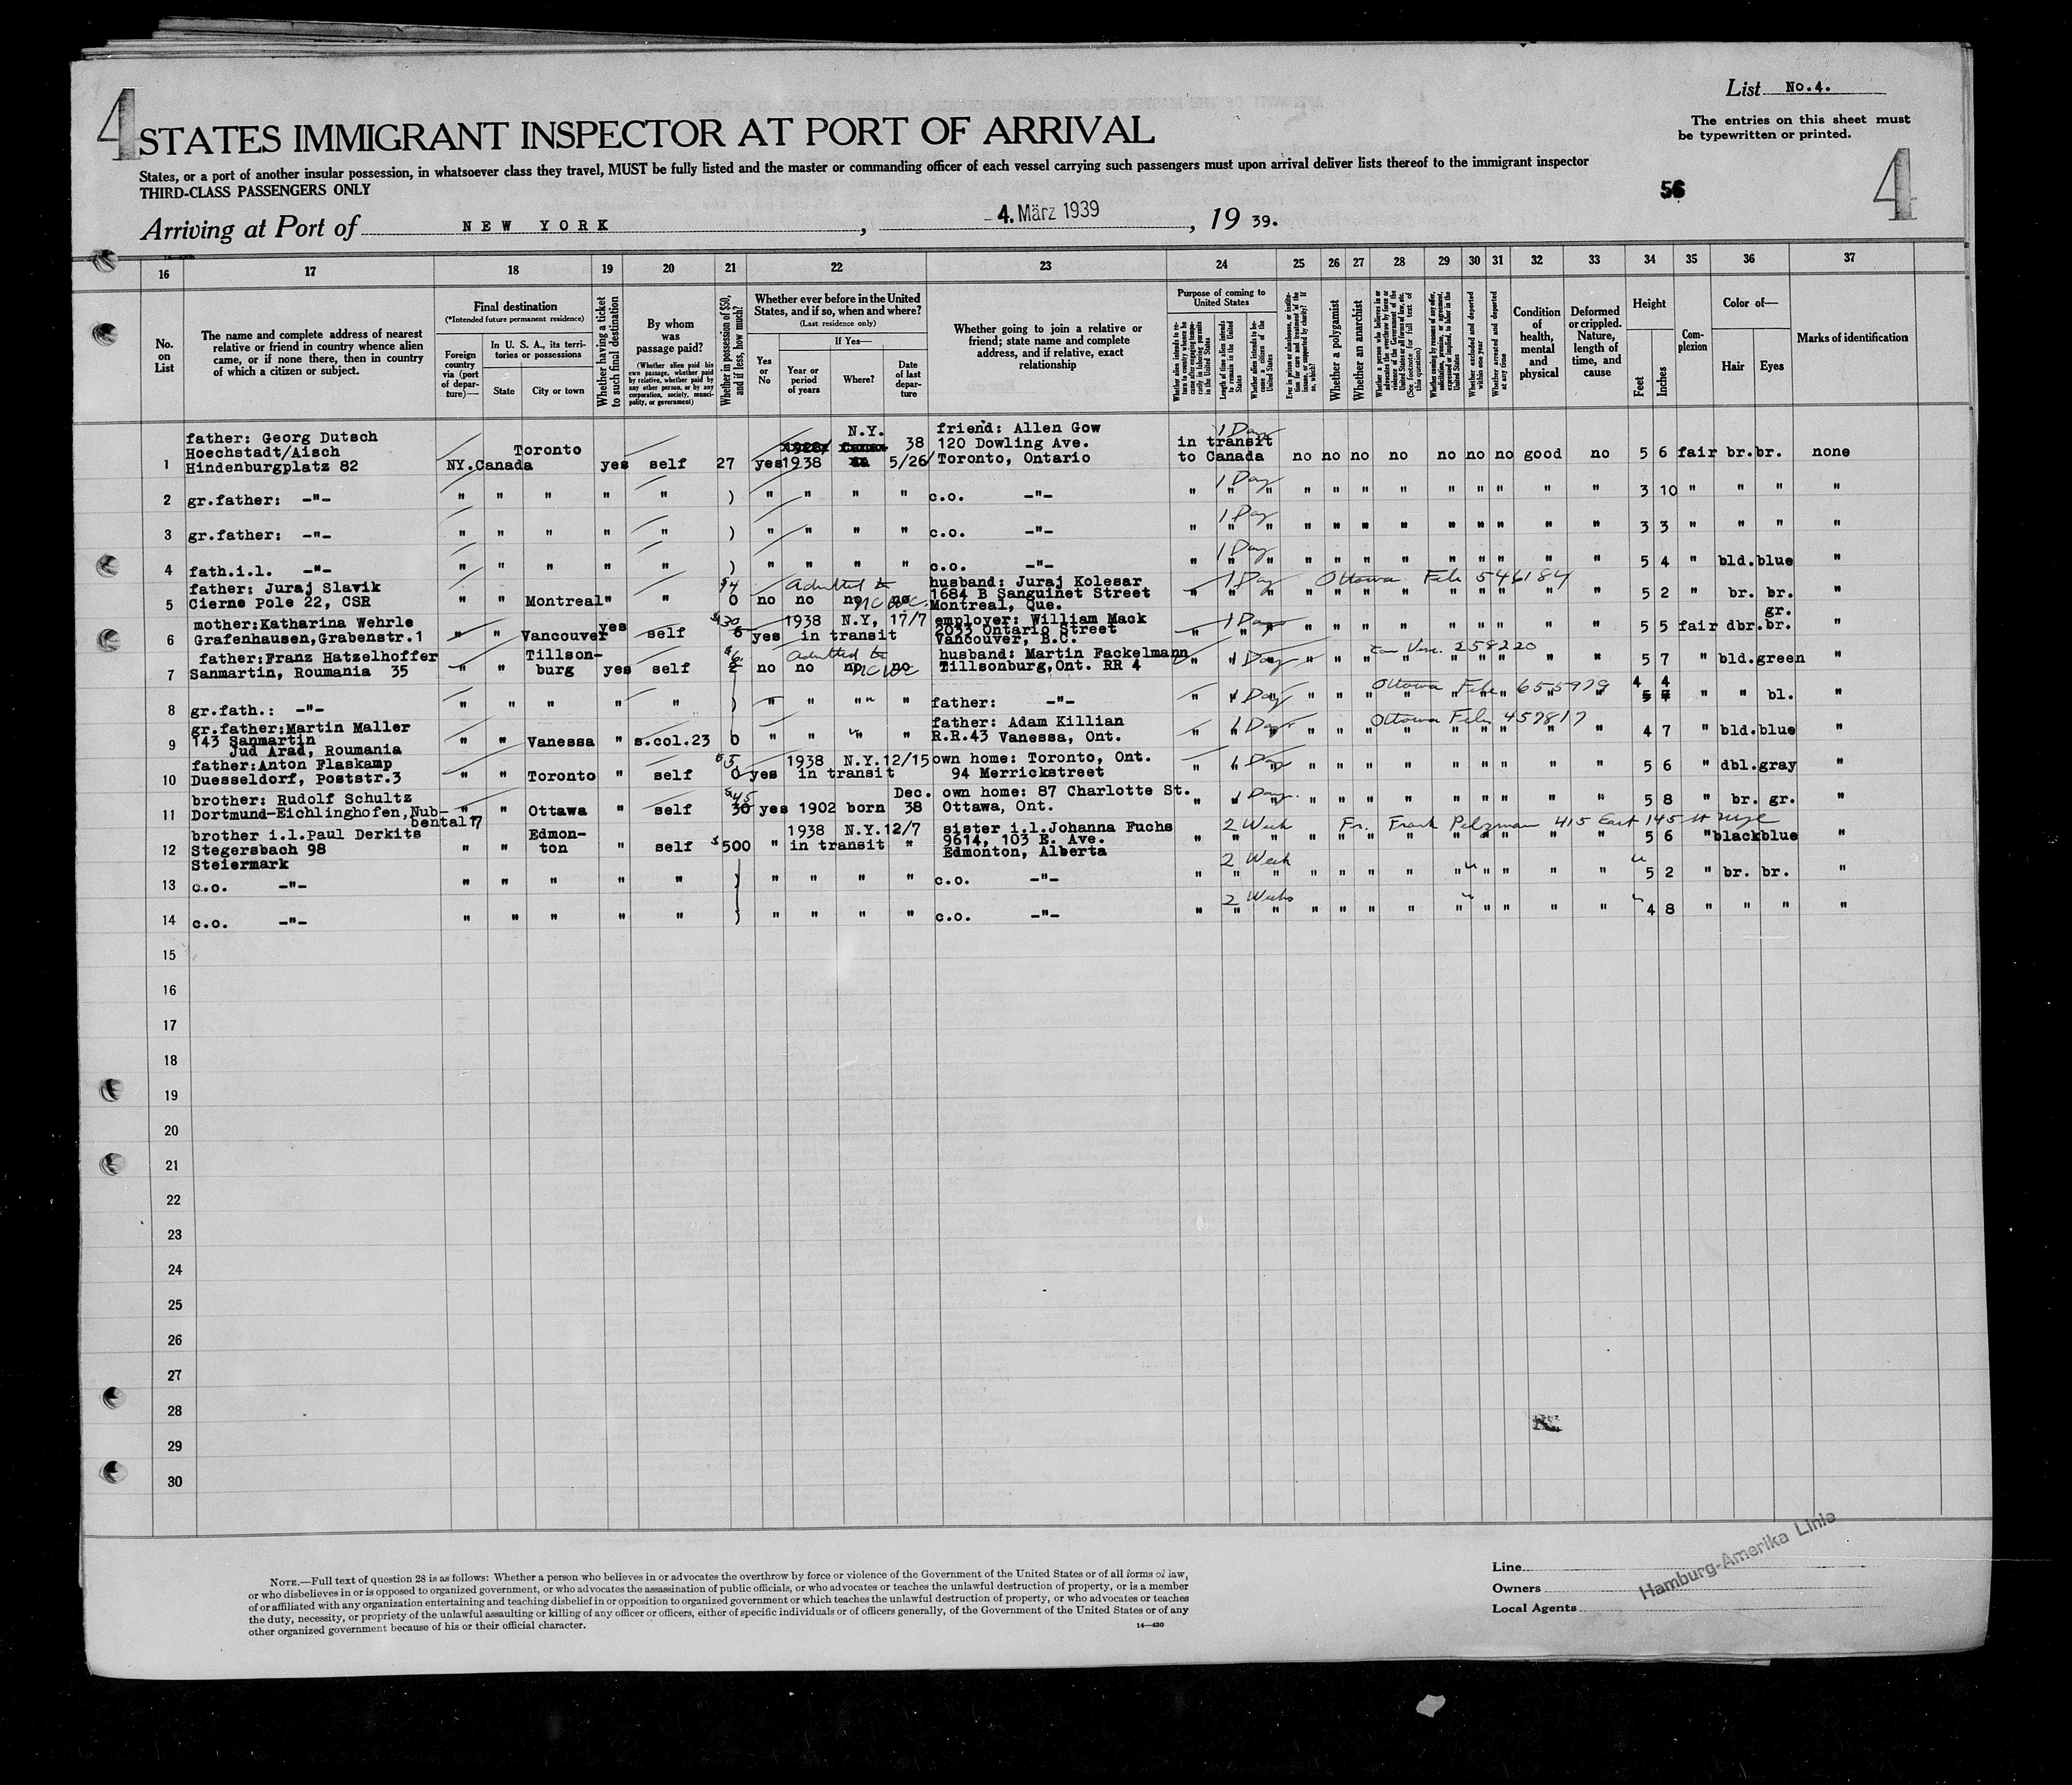 List No.4.
The entries on this sheet must
be typewritten or printed.
4
STATES IMMIGRANT INSPECTOR AT PORT OF ARRIVAL
States, or a port of another insular possession, in whatsoever class they travel, MUST be fully listed and the master or commanding officer of each vessel carrying such passengers must upon arrival deliver lists thereof to the immigrant inspector
THIRD-CLASS PASSENGERS ONLY
56
4
Arriving at Port of NEW YORK, 4. März 1939, 19 39.
16 17 18 19 20 21 22 23 24 25 26 27 28 29 30 31 32 33 34 35 36 37
No. on List
The name and complete address of nearest relative or friend in country whence alien came, or if none there, then in country of which a citizen or subject.
Final destination
(*Intended future permanent residence)
Foreign country via (port of departure)—
In U. S. A., its territories or possessions
State
City or town
Whether having a ticket to such final destination
By whom was passage paid?
(Whether alien paid his own passage, whether paid by relative, whether paid by any other person, or by any corporation, society, municipality, or government)
Whether in possession of $50, and if less, how much?
Whether ever before in the United States, and if so, when and where?
(Last residence only)
Yes or No
If Yes—
Year or period of years
Where?
Date of last departure
Whether going to join a relative or friend; state name and complete address, and if relative, exact relationship
Purpose of coming to United States
Length of time alien intends to remain in the United States
Whether alien intends to become a citizen of the United States
Whether a polygamist
Whether an anarchist
Whether excluded and deported within one year
Whether arrested and deported at any time
Condition of health, mental and physical
Deformed or crippled. Nature, length of time, and cause
Height
Feet
Inches
Complexion
Color of—
Hair
Eyes
Marks of identification
1 father: Georg Dutsch
Hoechstadt/Aisch
Hindenburgplatz 82
NY. Canada Toronto yes self 27 yes 1938 N.Y. 38 5/26/
friend: Allen Gow
120 Dowling Ave.
Toronto, Ontario
in transit to Canada 1 Day no no no no no no no good no 5 6 fair br. br. none
2 gr.father: -"- " " " " " ) " " " " c.o. -"- " 1 Day " " " " " " " " " " 3 10 " " " "
3 gr.father: -"- " " " " " ) " " " " c.o. -"- " 1 Day " " " " " " " " " " 3 3 " " " "
4 fath.i.l. -"- " " " " " ) " " " " c.o. -"- " 1 Day " " " " " " " " " " 5 4 " bld. blue "
5 father: Juraj Slavik
Cierne Pole 22, CSR
" " Montreal " " $4 0 no no no no Admitted to
husband: Juraj Kolesar
1684 B Sanguinet Street
Montreal, Que.
" 1 Day Ottawa File 546184 5 2 " br. br. "
6 mother:Katharina Wehrle
Grafenhausen,Grabenstr.1
" " Vancouver yes self $30 yes 1938 N.Y, 17/7 in transit
employer: William Mack
2033 Ontario Street
Vancouver, B.C.
" 1 Day " " " " " " " " " 5 5 fair dbr. gr. br. "
7 father:Franz Hatzelhoffer
Sanmartin, Roumania 35
" " Tillson-
burg yes self $6 no no no no Admitted to
husband: Martin Fackelmann
Tillsonburg,Ont. RR 4
" 1 Day 258220 5 7 " bld. green "
8 gr.fath.: -"- " " " " " ) " " " " father: -"- " 1 Day Ottawa File 655979 4 4 " " bl. "
9 gr.father:Martin Maller
143 Sanmartin
Jud Arad, Roumania
" " Vanessa " s.col.23 0 " " " "
father: Adam Killian
R.R.43 Vanessa, Ont.
" 1 Day Ottawa File 457817 4 7 " bld. blue "
10 father:Anton Flaskamp
Duesseldorf, Poststr.3
" " Toronto " self $5 0 yes 1938 N.Y. 12/15 in transit
own home: Toronto, Ont.
94 Merrickstreet
" 1 Day " " " " " " " " " 5 6 " dbl. gray "
11 brother: Rudolf Schultz
Dortmund-Eichlinghofen,Nub-
bental 7
" " Ottawa " self $45 30 yes 1902 born Dec. 38
own home: 87 Charlotte St.
Ottawa, Ont.
" 1 Day. " " " " " " " " " 5 8 " br. gr. "
12 brother i.l.Paul Derkits
Stegersbach 98
Steiermark
" " Edmon-
ton " self $500 " 1938 N.Y. 12/7 in transit "
sister i.l.Johanna Fuchs
9614, 103 E. Ave.
Edmonton, Alberta
" 2 Week Fr. Frank Pelzman 415 East 145 St NYC 5 6 " black blue "
13 c.o. -"- " " " " " ) " " " " c.o. -"- " 2 Week " " " " " " " " " " 5 2 " br. br. "
14 c.o. -"- " " " " " ) " " " " c.o. -"- " 2 Weeks " " " " " " " " " " 4 8 " " " "
15
16
17
18
19
20
21
22
23
24
25
26
27
28
29
30
NOTE.—Full text of question 28 is as follows: Whether a person who believes in or advocates the overthrow by force or violence of the Government of the United States or of all forms of law,
or who disbelieves in or is opposed to organized government, or who advocates the assassination of public officials, or who advocates or teaches the unlawful destruction of property, or is a member
of or affiliated with any organization entertaining and teaching disbelief in or opposition to organized government or which teaches the unlawful destruction of property, or who advocates or teaches
the duty, necessity, or propriety of the unlawful assaulting or killing of any officer or officers, either of specific individuals or of officers generally, of the Government of the United States or of any
other organized government because of his or their official character.
14—430
Line
Owners
Local Agents
Hamburg-Amerika Linie